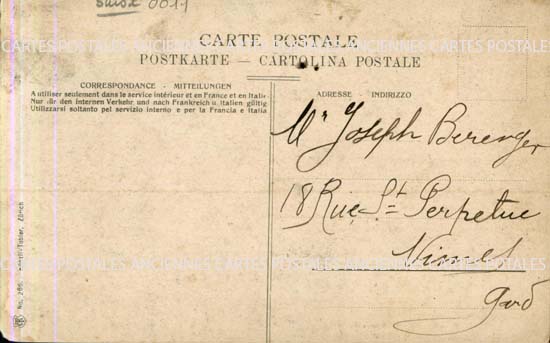 Suisse 0011
CARTE POSTALE
POSTKARTE — CARTOLINA POSTALE
CORRESPONDANCE - MITTEILUNGEN
A utiliser seulement dans le service intérieur et en France et en Italie
Nur für den internen Verkehr und nach Frankreich u. Italien gültig
Utilizzarsi soltanto pel servizio interno e per la Francia e Italia
ADRESSE - INDIRIZZO
Mr Joseph Berenger
18 Rue St Perpetue
Nimes
Gard
Tobler, Zürich
CARTES POSTALES ANCIENNES CARTES POSTALES
ANCIENNES CARTES POSTALES ANCIENNES CARTES POSTALES